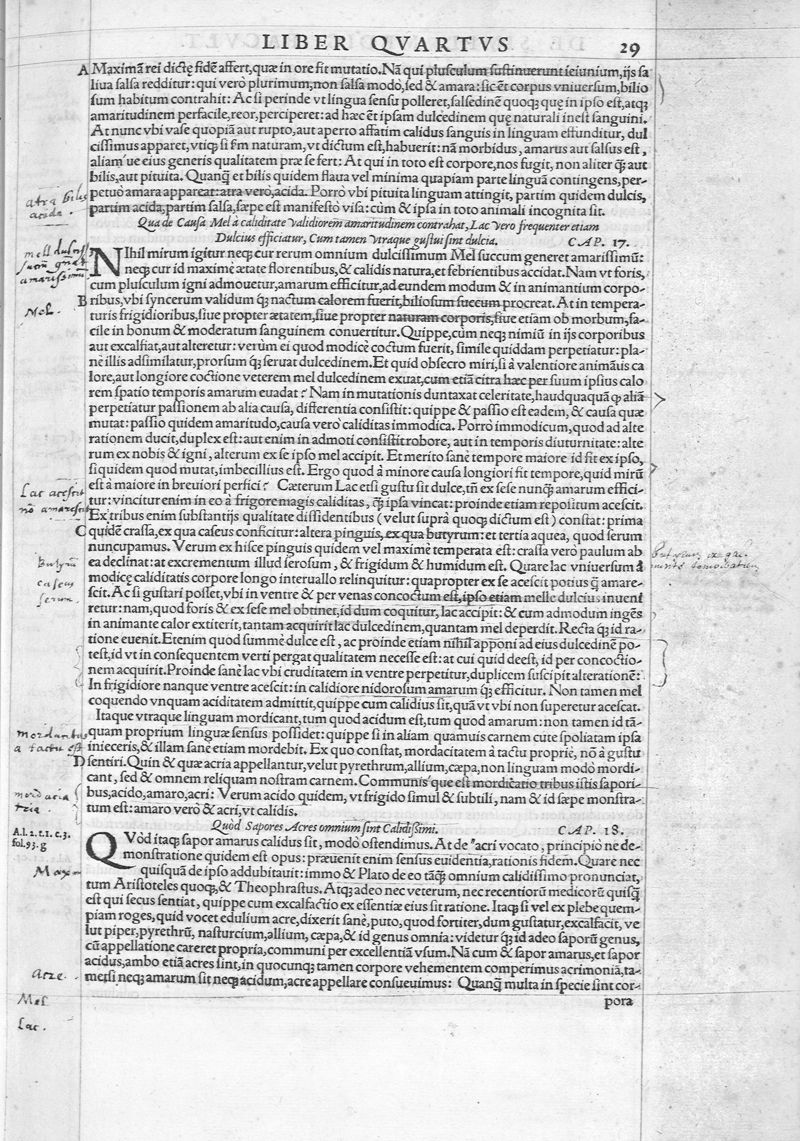 LIBER QVARTVS 29
A Maximā rei dictę fidē affert, quæ in ore fit mutatio. Nā qui plusculum sustinuerunt ieiunium, ijs sa
liua salsa redditur: qui verò plurimum, non salsa modò, sed & amara: sic et corpus vniuersum, bilio
sum habitum contrahit: Ac si perinde vt lingua sensu polleret, salsedinē quoqȝ quę in ipso est, atqȝ
amaritudinem perfacile, reor, perciperet: ad hæc et ipsam dulcedinem quę naturali inest sanguini.
At nunc vbi vase quopiā aut rupto, aut aperto affatim calidus sanguis in linguam effunditur, dul
cissimus apparet, vtiqȝ si fm naturam, vt dictum est, habuerit: nā morbidus, amarus aut salsus est,
aliam ue eius generis qualitatem præ se fert: At qui in toto est corpore, nos fugit, non aliter q̄ȝ aut
bilis, aut pituita. Quanq̄ et bilis quidem flaua vel minima quapiam parte linguā contingens, per-
petuò amara appareat: atra verò, acida. Porrò vbi pituita linguam attingit, partim quidem dulcis,
partim acida, partim salsa, sæpe est manifestò visa: cùm & ipsa in toto animali incognita sit.
atra bilis
acida.
Qua de Causa Mel à caliditate validiorem amaritudinem contrahat, Lac vero frequenter etiam
Dulcius efficiatur, Cum tamen vtraque gustui sint dulcia. CAP. 17.
NIhil mirum igitur neqȝ cur rerum omnium dulcissimum Mel succum generet amarissimū:
neqȝ cur id maximè ætate florentibus, & calidis natura, et febrientibus accidat. Nam vt foris,
cum plusculum igni admouetur, amarum efficitur, ad eundem modum & in animantium corpo-
B ribus, vbi syncerum validum qȝ nactum calorem fuerit, biliosum succum procreat. At in tempera-
turis frigidioribus, siue propter ætatem, siue propter naturam corporis, siue etiam ob morbum, fa-
cile in bonum & moderatum sanguinem conuertitur. Quippe, cùm neqȝ nimiū in ijs corporibus
aut excalfiat, aut alteretur: verùm ei quod modicè coctum fuerit, simile quiddam perpetiatur: pla-
nè illis adsimilatur, prorsum qȝ seruat dulcedinem. Et quid obsecro miri, si à valentiore animātis ca
lore, aut longiore coctione veterem mel dulcedinem exuat, cum etiā citra hæc per suum ipsius calo
rem spatio temporis amarum euadat? Nam in mutationis duntaxat celeritate, haudquaquā q̄ aliā
perpetiatur passionem ab alia causa, differentia consistit: quippe & passio est eadem, & causa quæ
mutat: passio quidem amaritudo, causa verò caliditas immodica. Porrò immodicum, quod ad alte
rationem ducit, duplex est: aut enim in admoti consistit robore, aut in temporis diuturnitate: alte
rum ex nobis & igni, alterum ex se ipso mel accipit. Et meritò sanè tempore maiore id fit ex ipso,
siquidem quod mutat, imbecillius est. Ergo quod à minore causa longiori fit tempore, quid mirū
est à maiore in breuiori perfici? Cæterum Lac etsi gustu sit dulce, tñ ex sese nunqȝ amarum effici-
tur: vincitur enim in eo à frigore magis caliditas, q̄ȝ ipsa vincat: proinde etiam repositum acescit.
Ex tribus enim substantijs qualitate dissidentibus (velut suprà quoqȝ dictum est) constat: prima
C quidē crassa, ex qua caseus conficitur: altera pinguis, ex qua butyrum: et tertia aquea, quod serum
nuncupamus. Verum ex hisce pinguis quidem vel maximè temperata est: crassa verò paulum ab
ea declinat: at excrementum illud serosum, & frigidum & humidum est. Quare lac vniuersum à
modicę caliditatis corpore longo interuallo relinquitur: quapropter ex se acescit potius q̄ amare-
scit. Ac si gustari posset, vbi in ventre & per venas concoctum est, ipso etiam melle dulcius inueni
retur: nam, quod foris & ex sese mel obtinet, id dum coquitur, lac accipit: & cum admodum ingēs
in animante calor extiterit, tantam acquirit lac dulcedinem, quantam mel deperdit. Recta qȝ id ra-
tione euenit. Etenim quod summè dulce est, ac proinde etiam nihil apponi ad eius dulcedinē po-
test, id vt in consequentem verti pergat qualitatem necesse est: at cui quid deest, id per concoctio-
nem acquirit. Proinde sanè lac vbi cruditatem in ventre perpetitur, duplicem suscipit alterationē:
In frigidiore nanque ventre acescit: in calidiore nidorosum amarum qȝ efficitur. Non tamen mel
coquendo vnquam aciditatem admittit, quippe cum calidius sit, quā vt vbi non superetur acescat.
Mel.
Lac acescit
nō amarescit
Butyrū
caseus
serum.
Itaque vtraque linguam mordicant, tum quod acidum est, tum quod amarum: non tamen id tā-
quam proprium linguæ sensus possidet: quippe si in aliam quamuis carnem cute spoliatam ipsa
inieceris, & illam sanè etiam mordebit. Ex quo constat, mordacitatem à tactu propriè, nō à gustu
D sentiri. Quin & quæ acria appellantur, velut pyrethrum, allium, cæpa, non linguam modò mordi-
cant, sed & omnem reliquam nostram carnem. Communis que est mordicatio tribus istis sapori-
bus, acido, amaro, acri: Verum acido quidem, vt frigido simul & subtili, nam & id sæpe monstra-
tum est: amaro verò & acri, vt calidis.
a tactu est
Quòd Sapores Acres omnium sint Calidissimi. CAP. 18.
A.l. 2. t. 1. c. 3.
fol. 93. g
QVòd itaqȝ sapor amarus calidus sit, modò ostendimus. At de acri vocato, principiò ne de-
monstratione quidem est opus: præuenit enim sensus euidentia, rationis fidem. Quare nec
quisquā de ipso addubitauit: immo & Plato de eo tāqȝ omnium calidissimo pronunciat,
tum Aristoteles quoqȝ, & Theophrastus. Atqȝ adeo nec veterum, nec recentiorū medicorū quisq̄
est qui secus sentiat, quippe cum excalfactio ex essentiæ eius sit ratione. Itaqȝ si vel ex plebe quem-
piam roges, quid vocet edulium acre, dixerit sanè, puto, quod fortiter, dum gustatur, excalfacit, ve
lut piper, pyrethrū, nasturcium, allium, cæpa, & id genus omnia: videtur qȝ id adeo saporū genus,
cū appellatione careret propria, communi per excellentiā vsum. Nā cum & sapor amarus, et sapor
acidus, ambo etiā acres sint, in quocunqȝ tamen corpore vehementem comperimus acrimoniā, ta-
metsi neqȝ amarum sit neqȝ acidum, acre appellare consueuimus: Quanq̄ multa in specie sint cor-
pora
Acre.
Mel
Lac.